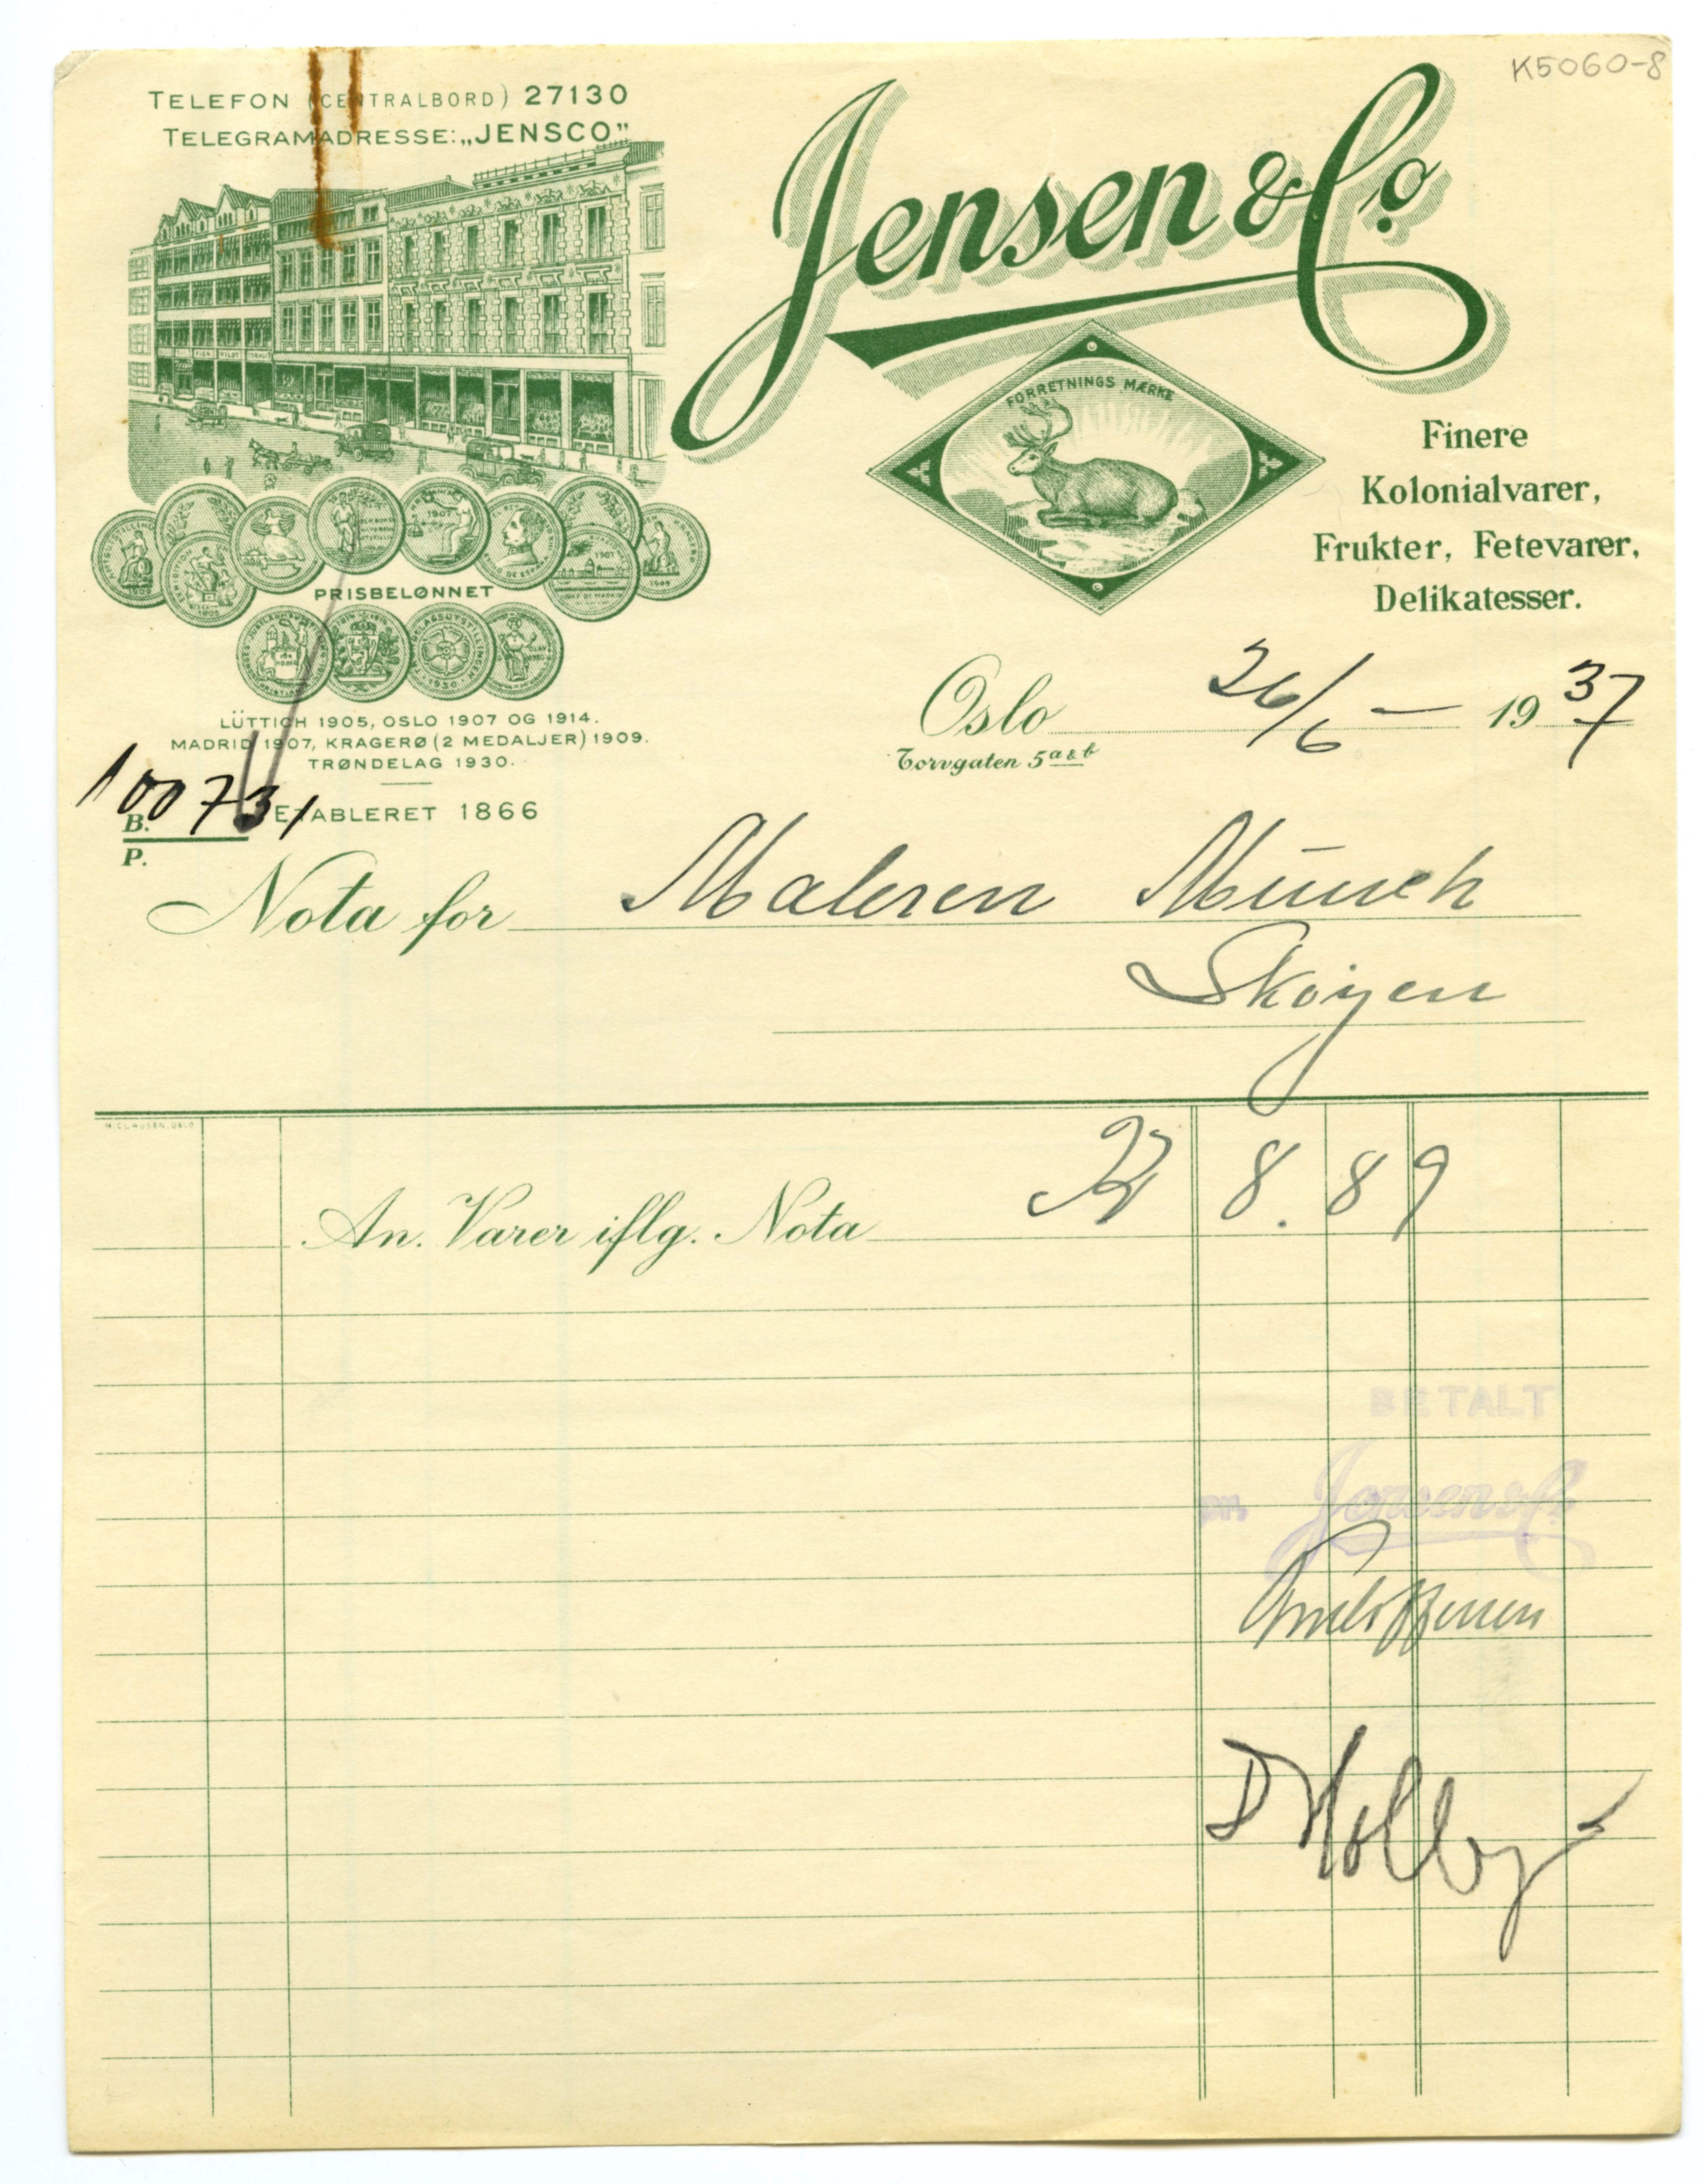 K5060-8
TELEFON (CENTRALBORD) 27130
TELEGRAMADRESSE: „JENSCO”
Jensen & Co.
FORRETNINGS MÆRKE
Finere
Kolonialvarer,
Frukter, Fetevarer,
Delikatesser.
PRISBELØNNET
LÜTTICH 1905, OSLO 1907 OG 1914.
MADRID 1907, KRAGERØ (2 MEDALJER) 1909.
TRØNDELAG 1930.
ETABLERET 1866
Oslo 26/6 — 1937
Torvgaten 5 a & b
100731
B.
P.
Nota for Maleren Munch
Skøyen
H. CLAUSEN, OSLO
An. Varer iflg. Nota Kr 8.89
BETALT
pr. Jensen & Co.